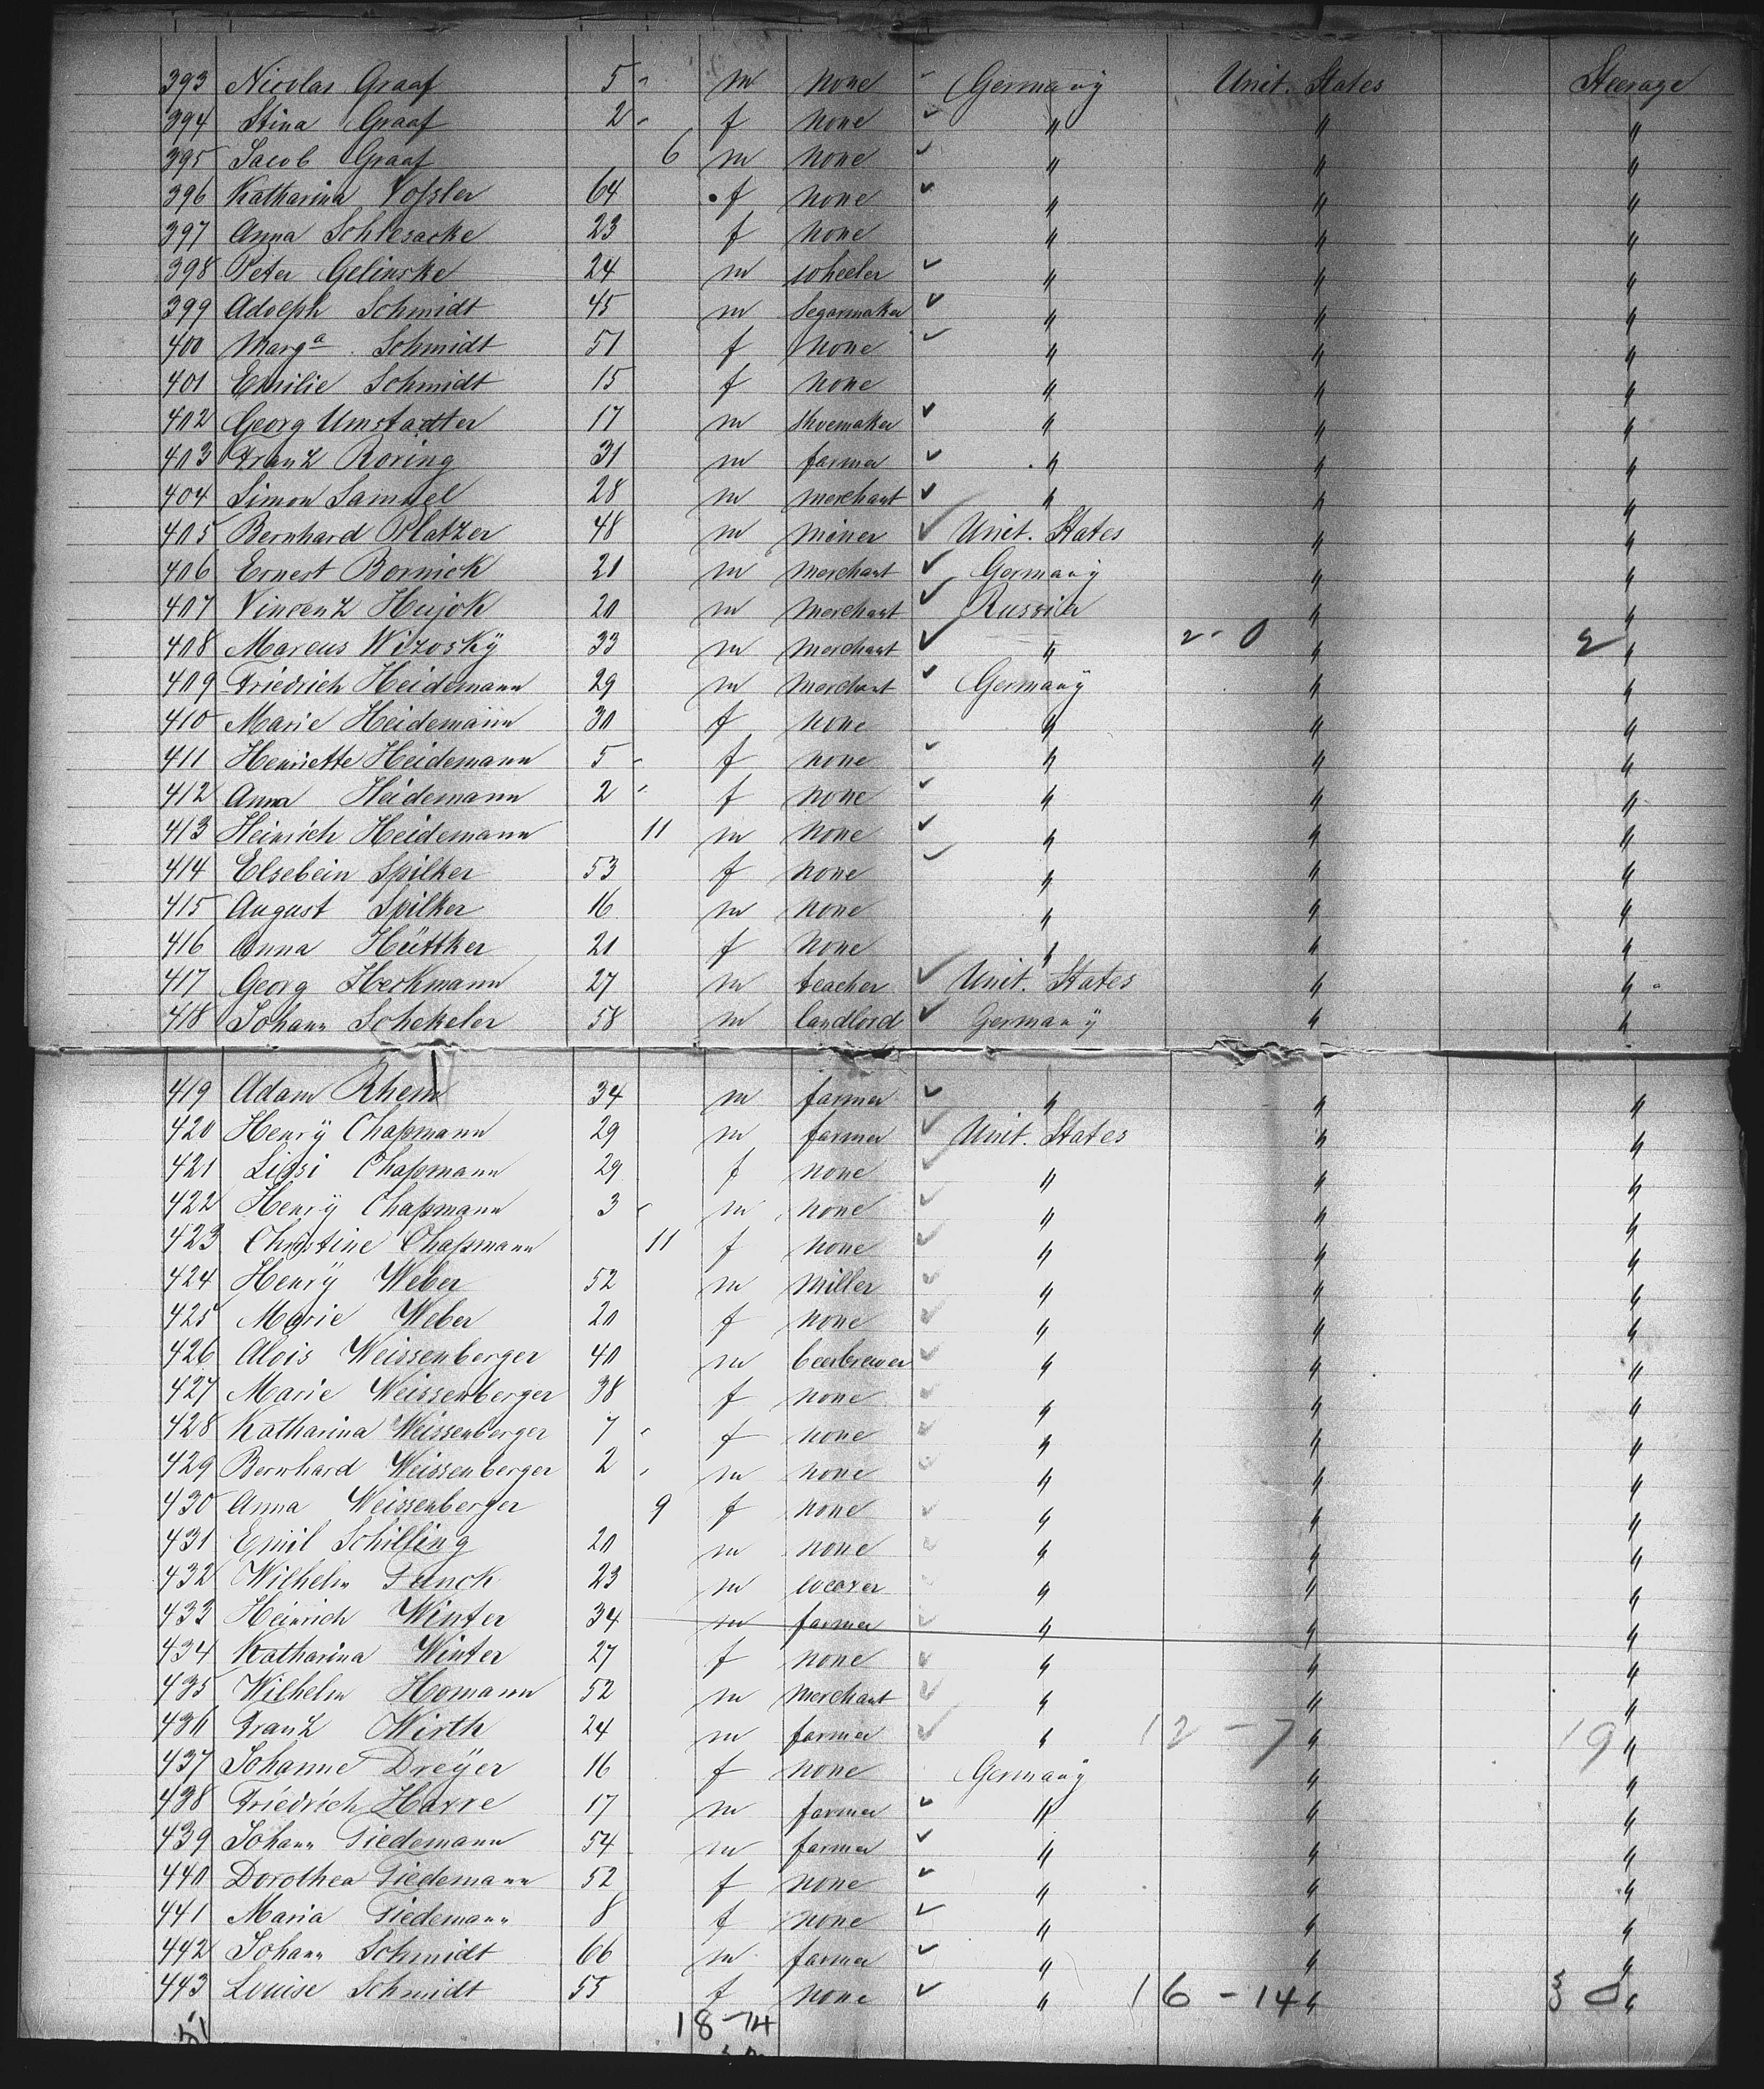 393 Nicolas Graaf 5 - m none Germany Unit. States Steerage
394 Stina Graaf 2 - f none " " "
395 Jacob Graaf 6 m none " " "
396 Katharina Voßler 64 f none " " "
397 Anna Schlesacke 23 f none " " "
398 Peter Gelinske 24 m wheeler " " "
399 Adolph Schmidt 45 m Segarmaker " " "
400 Marga. Schmidt 51 f none " " "
401 Emilie Schmidt 15 f none " " "
402 Georg Umstadter 17 m shoemaker " " "
403 Franz Roring 31 m farmer " " "
404 Simon Samuel 28 m merchant " " "
405 Bernhard Platzer 48 m miner Unit. States " "
406 Ernest Bornick 21 m merchant Germany " "
407 Vincenz Hujok 20 m merchant Russia " "
408 Marcus Wizosky 33 m merchant " 2 - 0 " 2 "
409 Friedrich Heidemann 29 m merchant Germany " "
410 Marie Heidemann 30 f none " " "
411 Henriette Heidemann 5 - f none " " "
412 Anna Heidemann 2 - f none " " "
413 Heinrich Heidemann 11 m none " " "
414 Elsebein Spilker 53 f none " " "
415 August Spilker 16 m none " " "
416 Anna Hüttker 21 f none " " "
417 Georg Heckmann 27 m teacher Unit. States " "
418 Johann Schekeler 58 m landlord Germany " "
419 Adam Rhem 34 m farmer " " "
420 Henry Chapmann 29 m farmer Unit. States " "
421 Lissi Chapmann 29 f none " " "
422 Henry Chapmann 3 - m none " " "
423 Christine Chapmann 11 f none " " "
424 Henry Weber 52 m miller " " "
425 Marie Weber 20 f none " " "
426 Alois Weissenberger 40 m beerbrewer " " "
427 Marie Weissenberger 38 f none " " "
428 Katharina Weissenberger 7 - f none " " "
429 Bernhard Weissenberger 2 - m none " " "
430 Anna Weissenberger 9 f none " " "
431 Emil Schilling 20 m none " " "
432 Wilhelm Funck 23 m weaver " " "
433 Heinrich Winter 34 m farmer " " "
434 Katharina Winter 27 f none " " "
435 Wilhelm Homann 52 m merchant " " "
436 Franz Wirth 24 m farmer " 12 - 7 " 19 "
437 Johanne Dreyer 16 f none Germany " "
438 Friedrich Harre 17 m farmer " " "
439 Johann Tiedemann 54 m farmer " " "
440 Dorothea Tiedemann 52 f none " " "
441 Maria Tiedemann 8 f none " " "
442 Johann Schmidt 66 m farmer " " "
443 Louise Schmidt 55 f none " 16 - 14 " 30 "
51 18-14